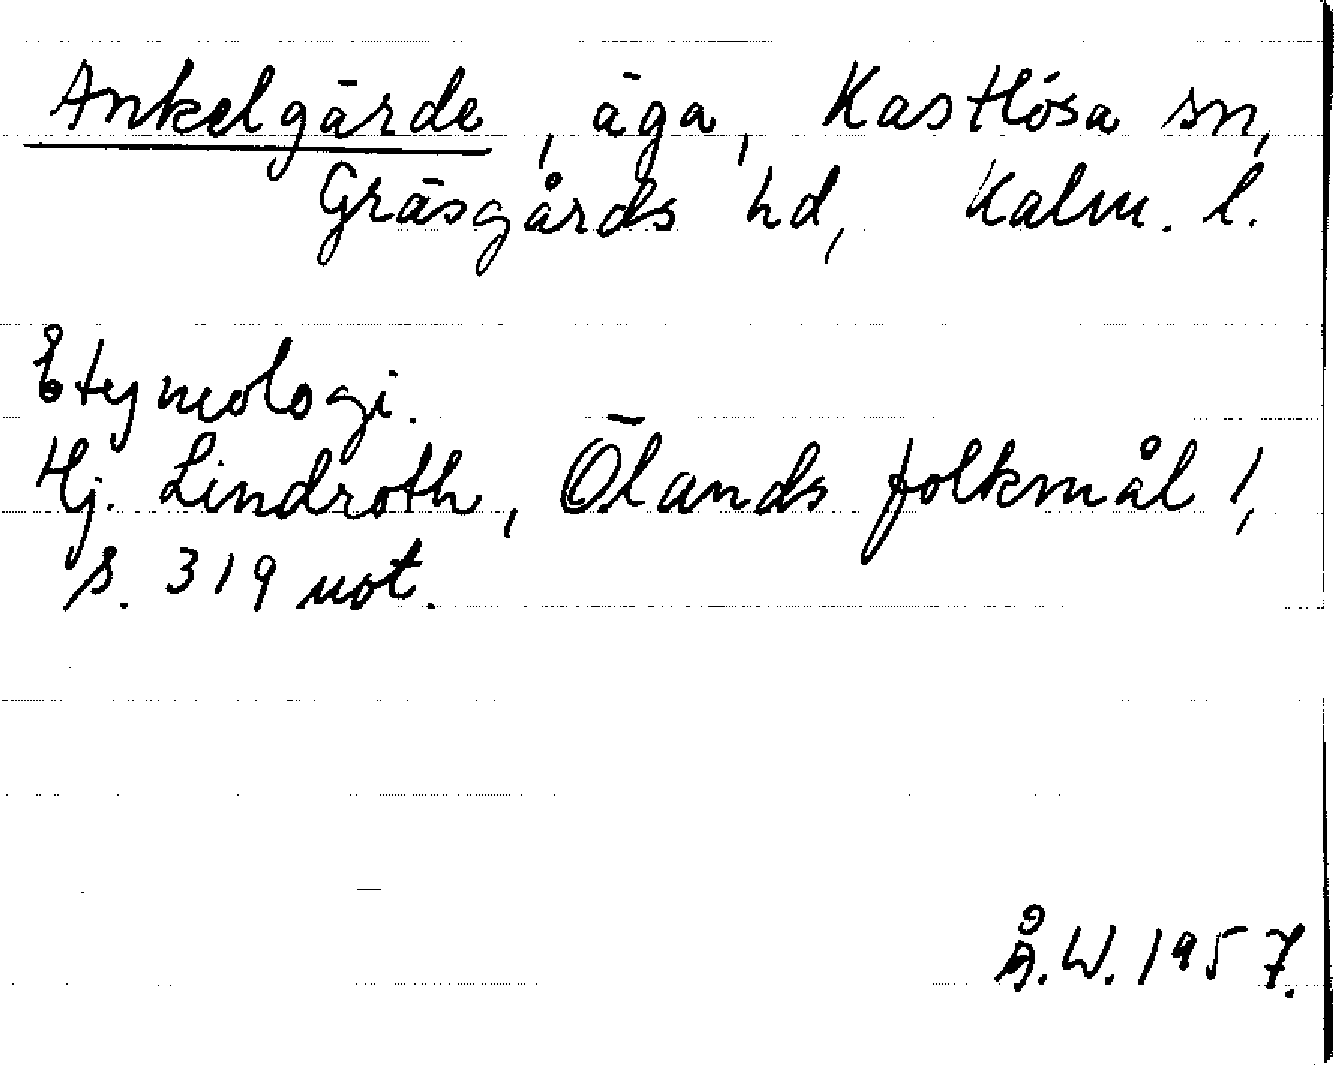 Ankelgärde, äga, Kastlösa sn,
Gräsgårds hd, Kalm. l.
Etymologi.
Hj. Lindroth, Ölands folkmål 1,
s. 319 not.
Å.W. 1957.